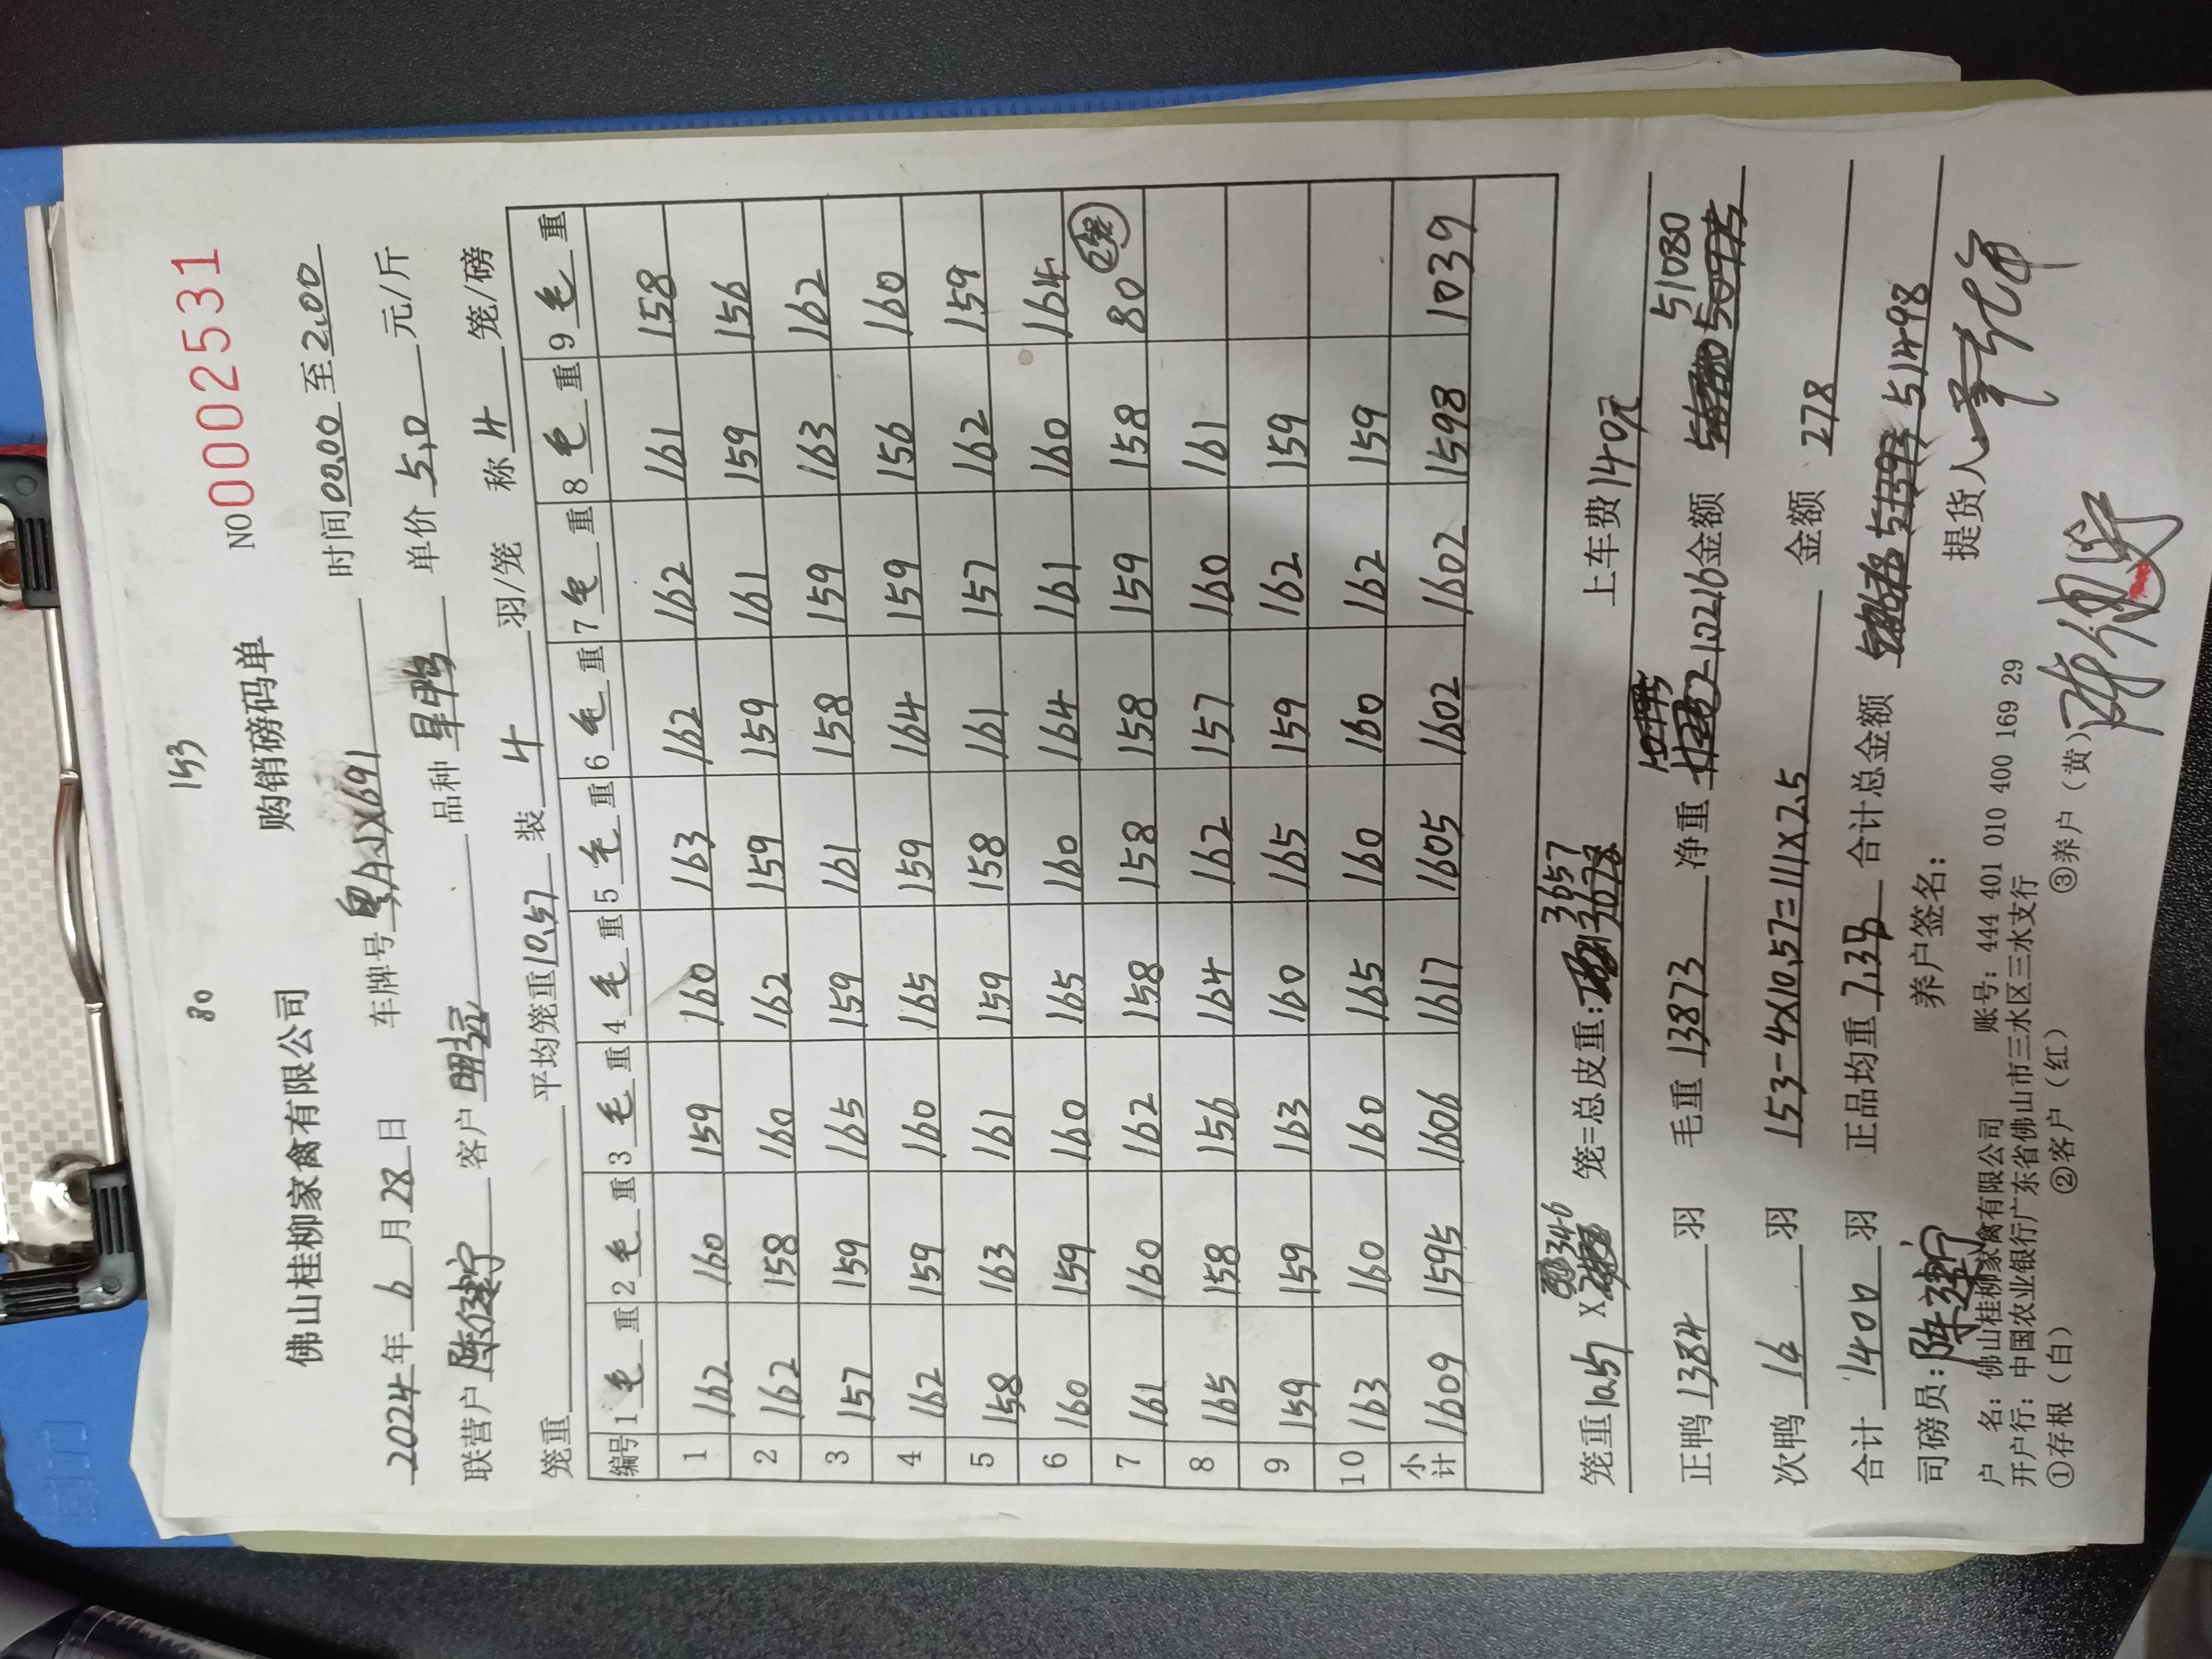 80 153
佛山桂柳家禽有限公司 购销磅码单 NO 0002531
2024年 6 月 28 日 车牌号 粤AJX691 时间 00.00 至 2.00
联营户 陈健宁 客户 明记 品种 旱鸭 单价 5.0 元/斤
笼重 平均笼重 10.57 装 4 羽/笼 称 4 笼/磅
编号 1 毛 重 2 毛 重 3 毛 重 4 毛 重 5 毛 重 6 毛 重 7 毛 重 8 毛 重 9 毛 重
1 162 160 159 160 163 162 162 161 158
2 162 158 160 162 159 159 161 159 156
3 157 159 165 159 161 158 159 163 162
4 162 159 160 165 159 164 159 156 160
5 158 163 161 159 158 161 157 162 159
6 160 159 160 165 160 164 161 160 164
7 161 160 162 158 158 158 159 158 80 2笼
8 165 158 156 164 162 157 160 161
9 159 159 163 160 165 159 162 159
10 163 160 160 165 160 160 162 159
小计 1609 1595 1606 1617 1605 1602 1602 1598 1039
笼重 10.57 X 346 笼=总皮重: 3657 上车费 140元
正鸭 1384 羽 毛重 13873 净重 10216 金额 51080
次鸭 16 羽 153-4X10.57=111X2.5 金额 278
合计 1400 羽 正品均重 7.38 合计总金额 51498
司磅员: 陈建宁 养户签名: 提货人
户 名: 佛山桂柳家禽有限公司 账号: 444 401 010 400 169 29
开户行: 中国农业银行广东省佛山市三水区三水支行
①存根（白） ②客户（红） ③养户（黄）